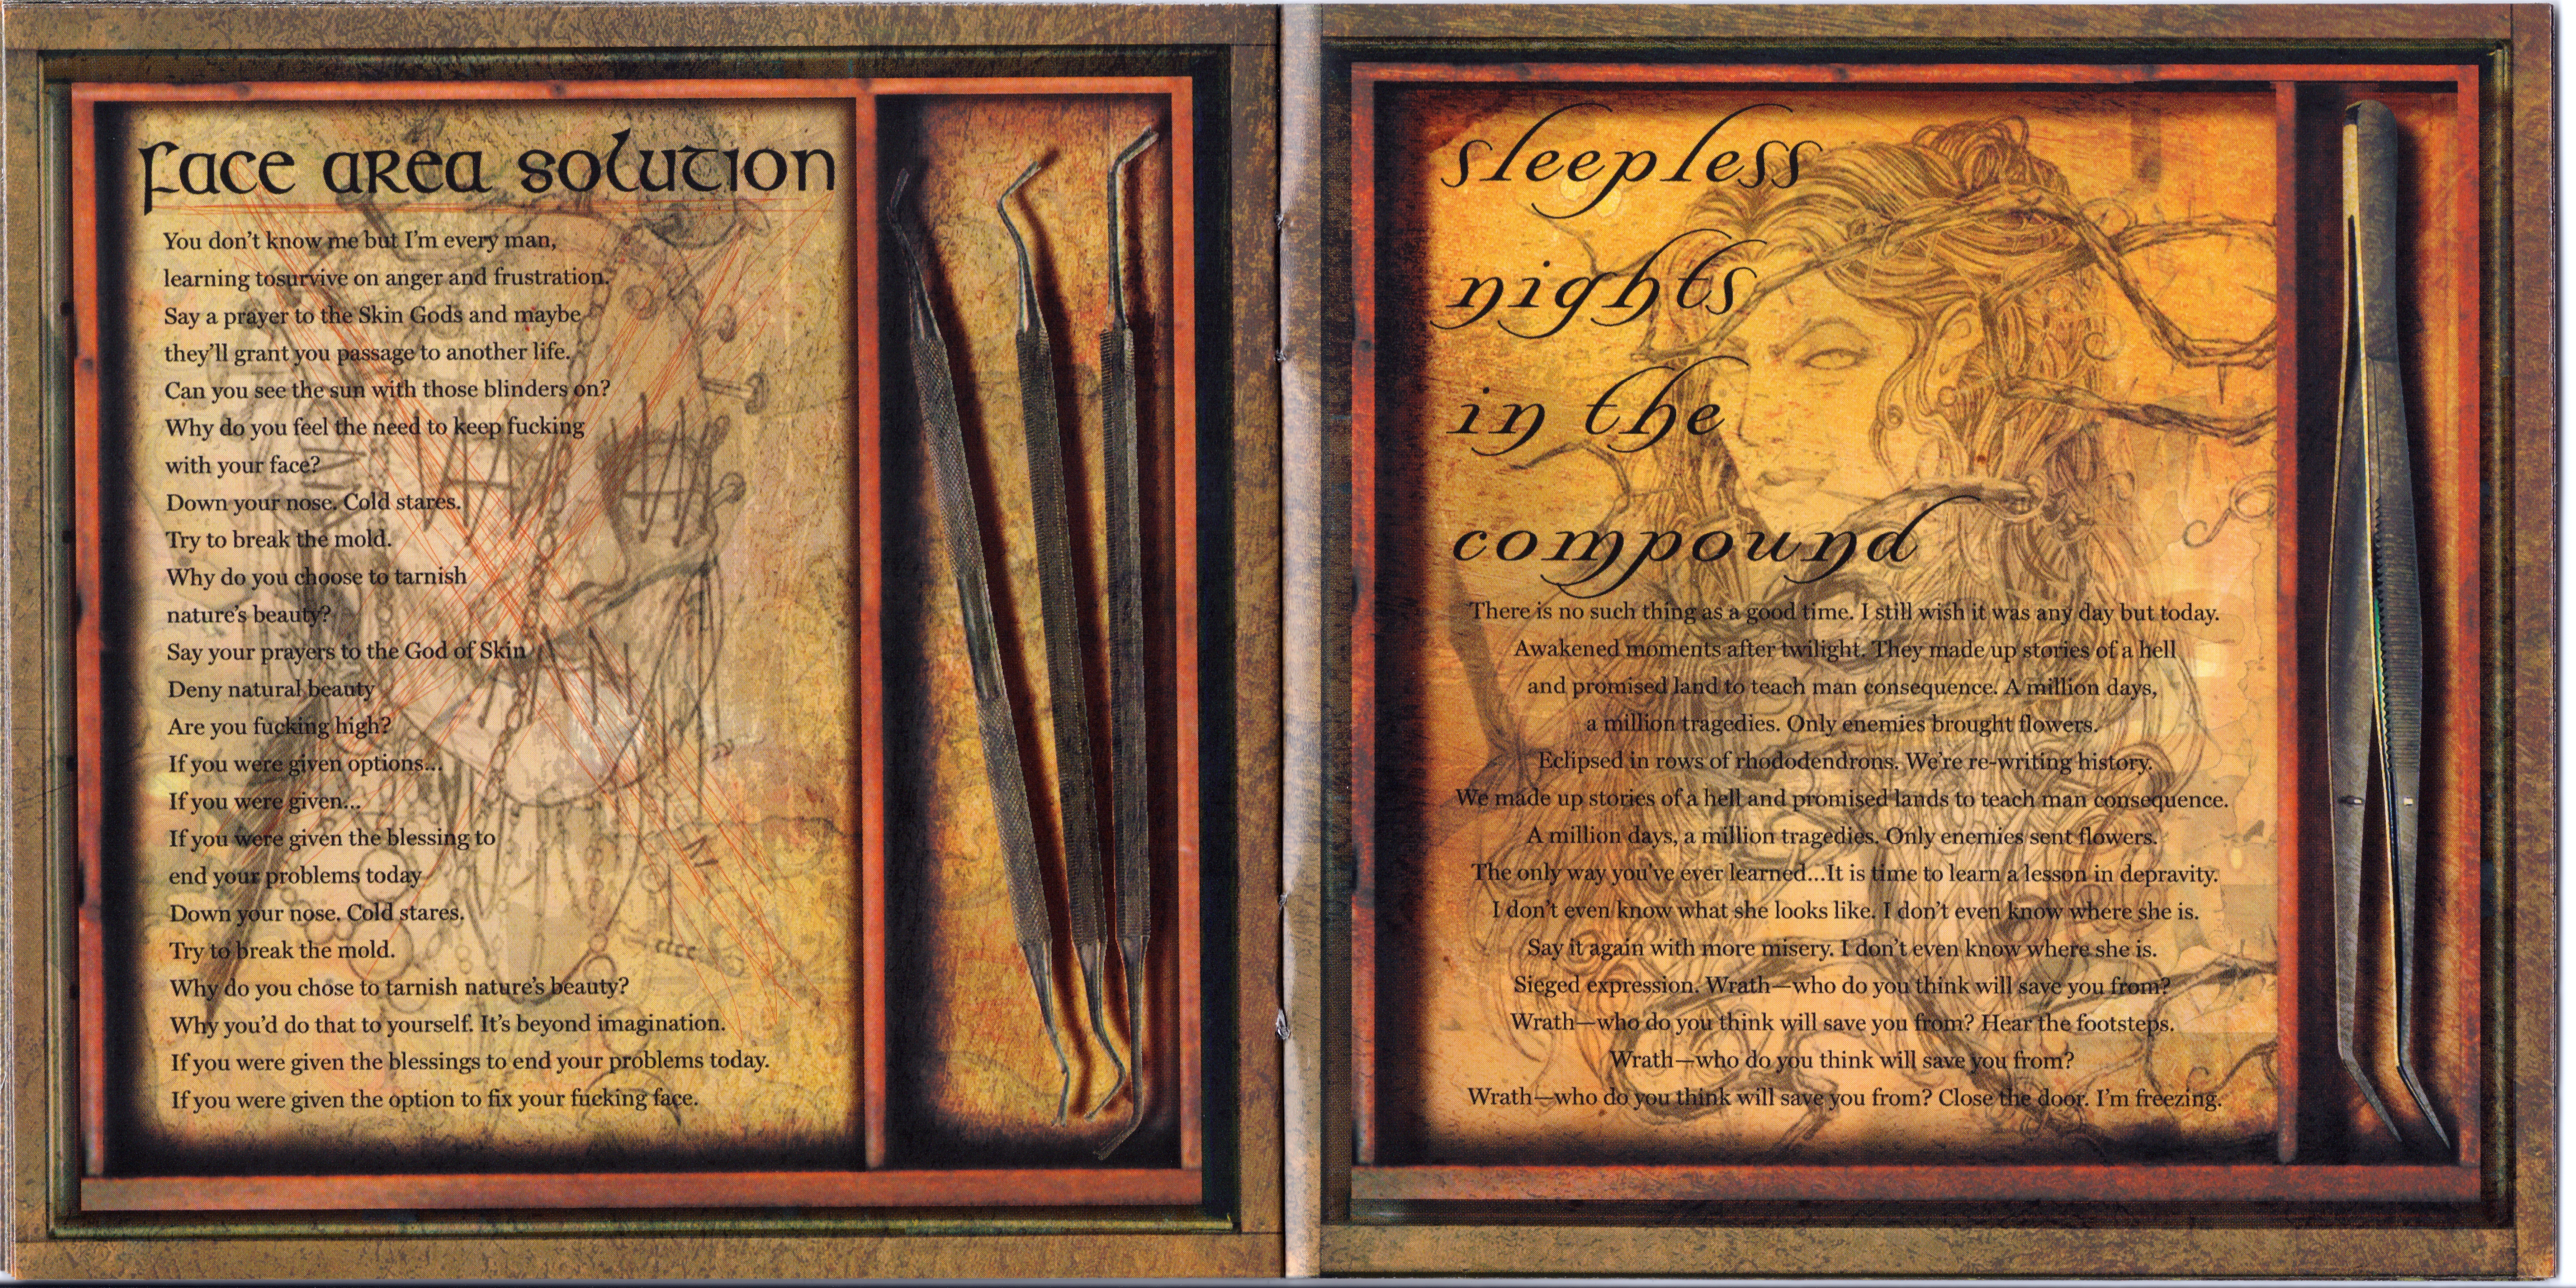 face area solution
You don't know me but I'm every man,
learning tosurvive on anger and frustration.
Say a prayer to the Skin Gods and maybe
they'll grant you passage to another life.
Can you see the sun with those blinders on?
Why do you feel the need to keep fucking
with your face?
Down your nose. Cold stares.
Try to break the mold.
Why do you choose to tarnish
nature's beauty?
Say your prayers to the God of Skin
Deny natural beauty
Are you fucking high?
If you were given options...
If you were given...
If you were given the blessing to
end your problems today
Down your nose. Cold stares.
Try to break the mold.
Why do you chose to tarnish nature's beauty?
Why you'd do that to yourself. It's beyond imagination.
If you were given the blessings to end your problems today.
If you were given the option to fix your fucking face.
sleepless
nights
in the
compound
There is no such thing as a good time. I still wish it was any day but today.
Awakened moments after twilight. They made up stories of a hell
and promised land to teach man consequence. A million days,
a million tragedies. Only enemies brought flowers.
Eclipsed in rows of rhododendrons. We're re-writing history.
We made up stories of a hell and promised lands to teach man consequence.
A million days, a million tragedies. Only enemies sent flowers.
The only way you've ever learned...It is time to learn a lesson in depravity.
I don't even know what she looks like. I don't even know where she is.
Say it again with more misery. I don't even know where she is.
Sieged expression. Wrath—who do you think will save you from?
Wrath—who do you think will save you from? Hear the footsteps.
Wrath—who do you think will save you from?
Wrath—who do you think will save you from? Close the door. I'm freezing.